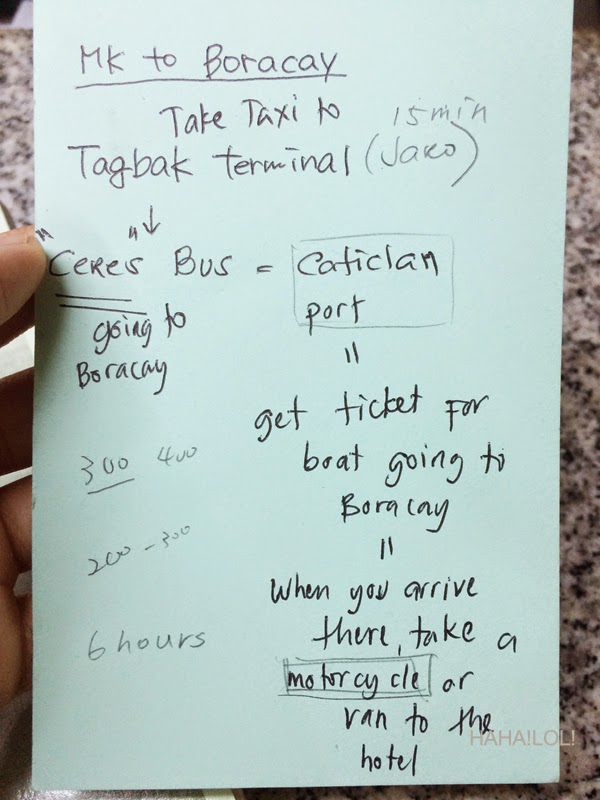 MK to Boracay
Take Taxi to 15min
Tagbak terminal (Jaro)
"Ceres" Bus = Caticlan
port
going to
Boracay
get ticket for
boat going to
Boracay
300 400
200 - 300
6 hours
When you arrive
there, take a
motorcycle or
van to the
hotel
HAHA!LOL!